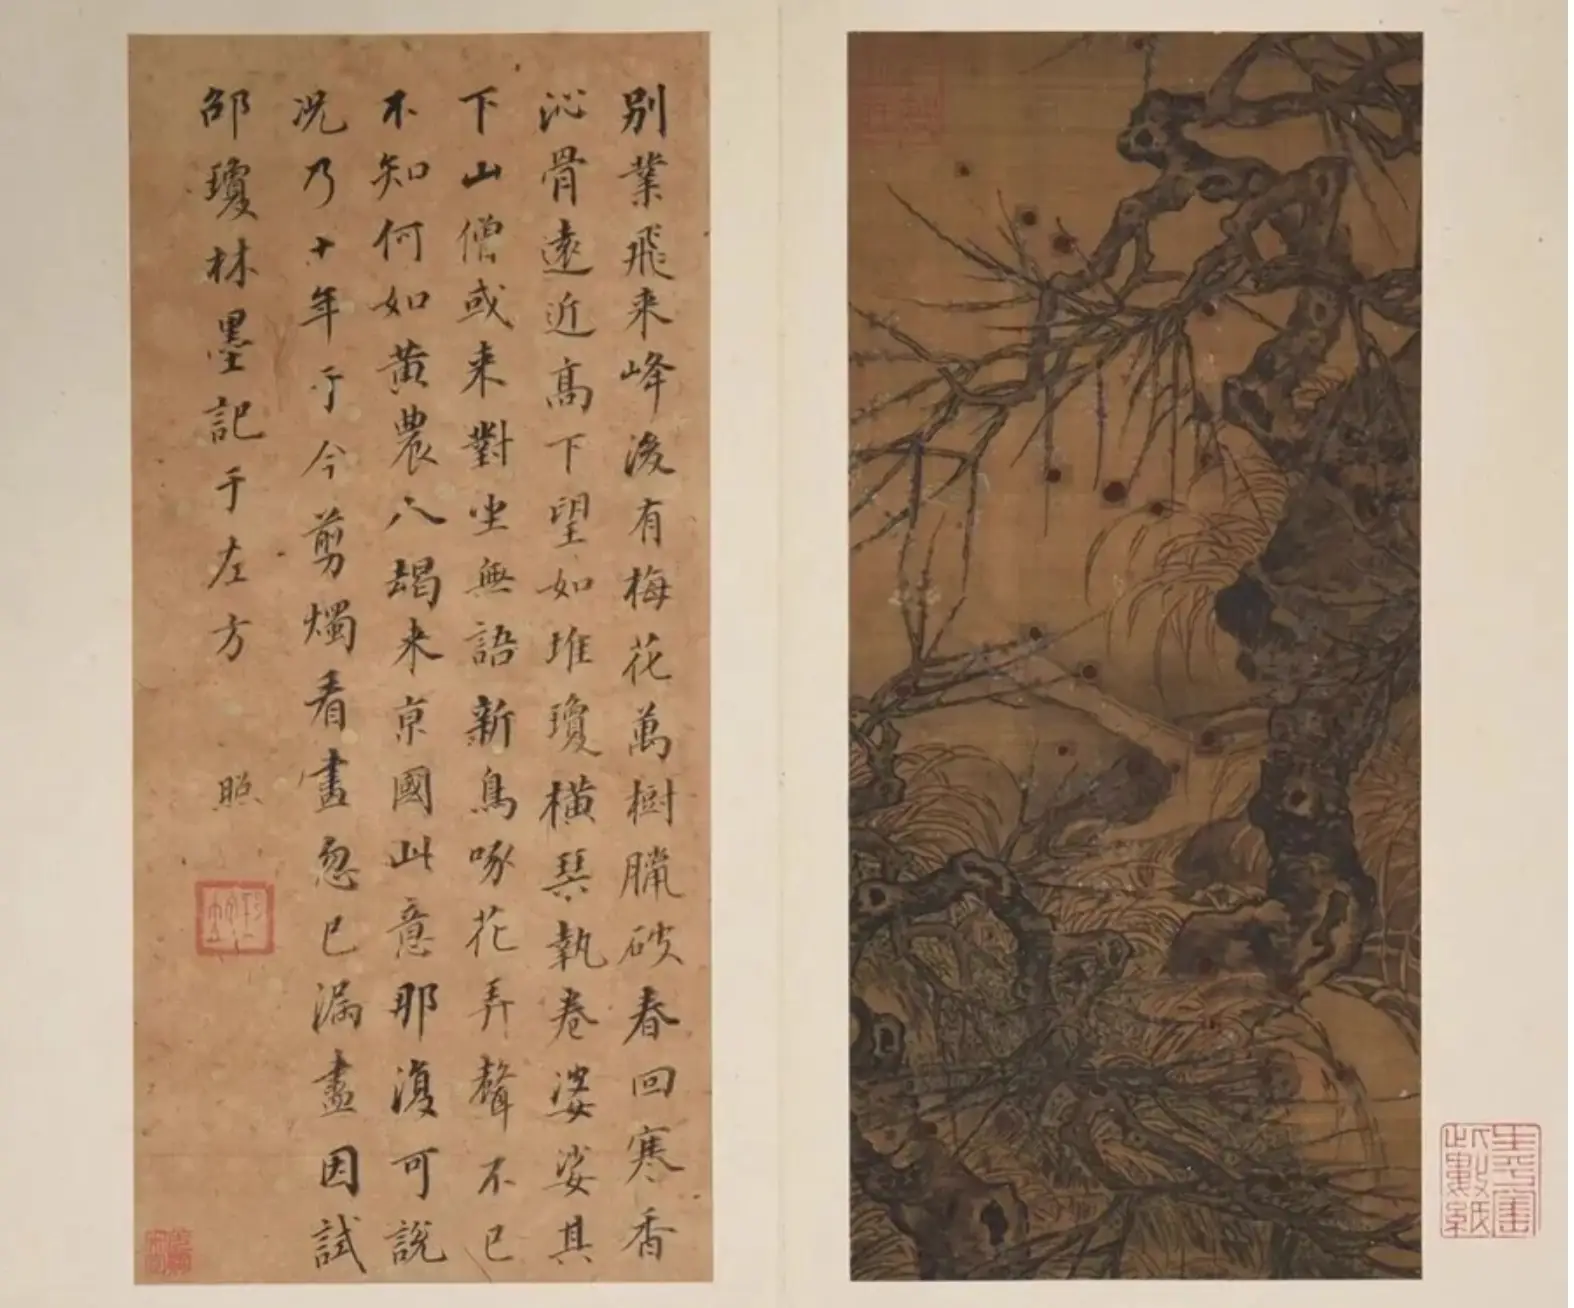 別業飛来峰後有梅花萬樹臘破春回寒香
沁骨遠近高下望如堆瓊橫琴執卷婆娑其
下山僧或来對坐無語新鳥啄花弄聲不已
不知何如黄農人朅来京國此意那復可說
况乃十年于今剪燭看畫忽已漏盡因試
邵瓊林墨記于左方 照